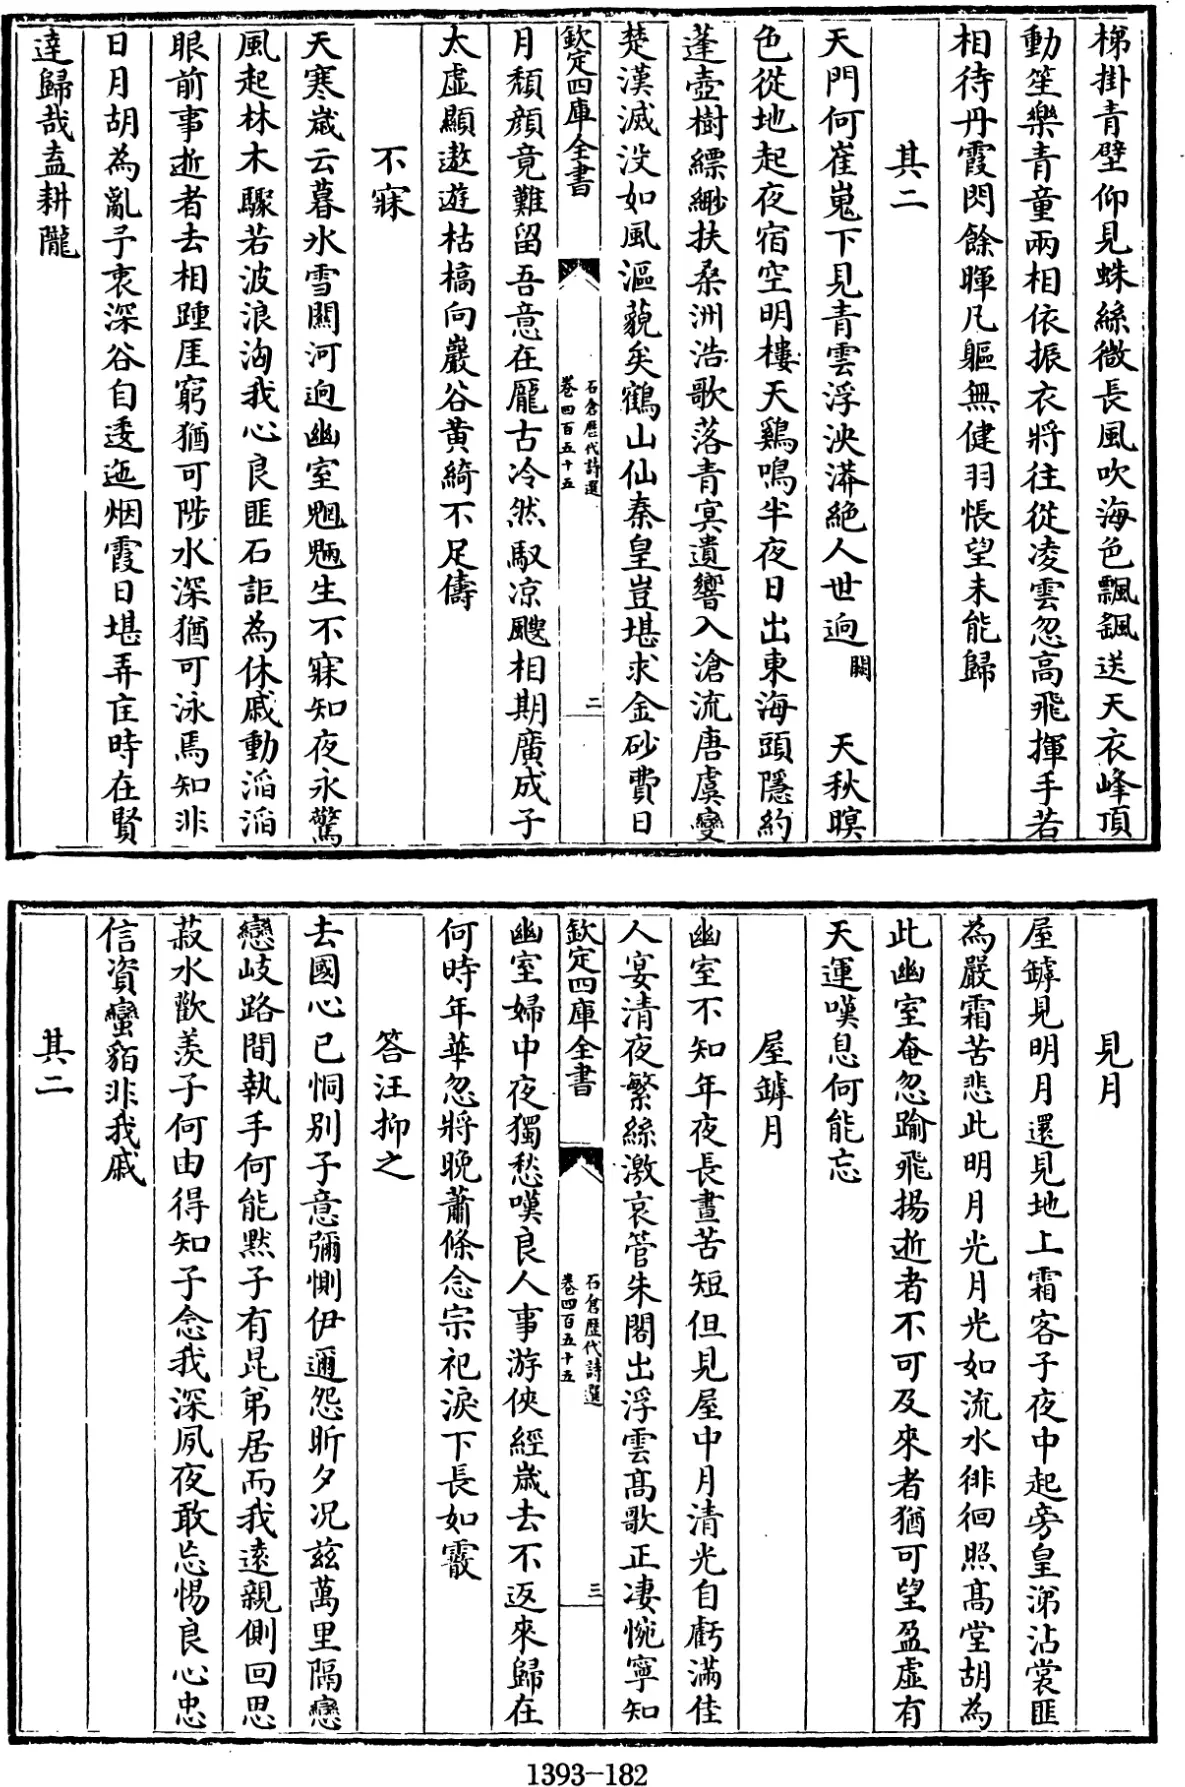 梯掛青壁仰見蛛絲微長風吹海色飄颻送天衣峰頂
動笙樂青童兩相依振衣將往從凌雲忽高飛揮手若
相待丹霞閃餘暉凡軀無健羽悵望未能歸
其二
天門何崔嵬下見青雲浮泱漭絶人世逈闕 天秋暝
色從地起夜宿空明樓天鷄鳴半夜日出東海頭隱約
蓬壺樹縹緲扶桑洲浩歌落青㝠遺響入滄流唐虞變
楚漢滅没如風漚藐矣鶴山仙秦皇豈堪求金砂費日
欽定四庫全書
石倉歷代詩選
卷四百五十五
二
月頽顔竟難留吾意在龎古冷然馭凉颸相期廣成子
太虛顯遨遊枯槁向巖谷黄綺不足儔
不寐
天寒嵗云暮氷雪關河逈幽室魍魎生不寐知夜永驚
風起林木驟若波浪洶我心良匪石詎為休戚動滔滔
眼前事逝者去相踵厓窮猶可陟水深猶可泳焉知非
日月胡為亂予衷深谷自逶迤烟霞日堪弄匡時在賢
達歸哉盍耕隴
見月
屋罅見明月還見地上霜客子夜中起旁皇涕沾裳匪
為嚴霜苦悲此明月光月光如流水徘徊照髙堂胡為
此幽室奄忽踰飛揚逝者不可及來者猶可望盈虛有
天運嘆息何能忘
屋罅月
幽室不知年夜長晝苦短但見屋中月清光自虧滿佳
人宴清夜繁絲激哀管朱閣出浮雲髙歌正凄惋寧知
欽定四庫全書
石倉歷代詩選
卷四百五十五
三
幽室婦中夜獨愁嘆良人事游俠經嵗去不返來歸在
何時年華忽將晚蕭條念宗祀淚下長如霰
答汪抑之
去國心已恫别子意彌惻伊邇怨昕夕况兹萬里隔戀
戀岐路間執手何能黙子有昆弟居而我逺親側回思
菽水歡羡子何由得知子念我深夙夜敢忘惕良心忠
信資蠻貊非我戚
其二
1393-182